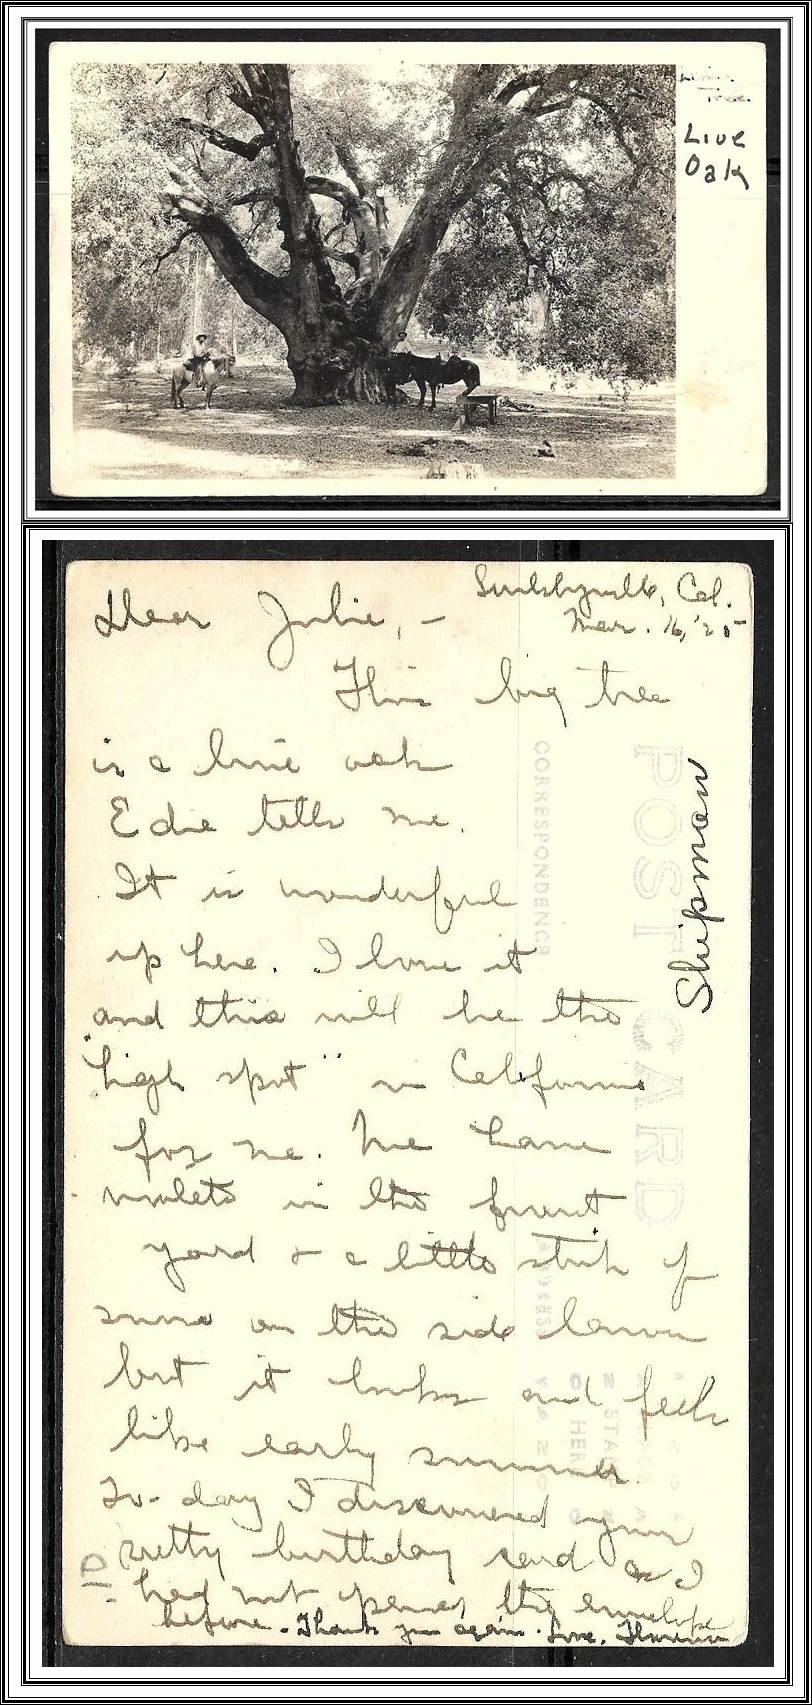 Live
Tree
Live
Oak
Cal.
Mar. 16, '25
Dear Julie, -
This big tree
is a live oak
Edie tells me.
It is wonderful
up here. I love it
and this will be the
"high spot" in California
for me. We have
violets in the front
yard & a little strip of
snow on the side lawn
but it looks and feels
like early summer
To-day I discovered your
pretty birthday card as I
had not opened the envelope
before. Thank you again. Love, Florence
Shipman
POST CARD
CORRESPONDENCE
ADDRESS
STAMP
HERE